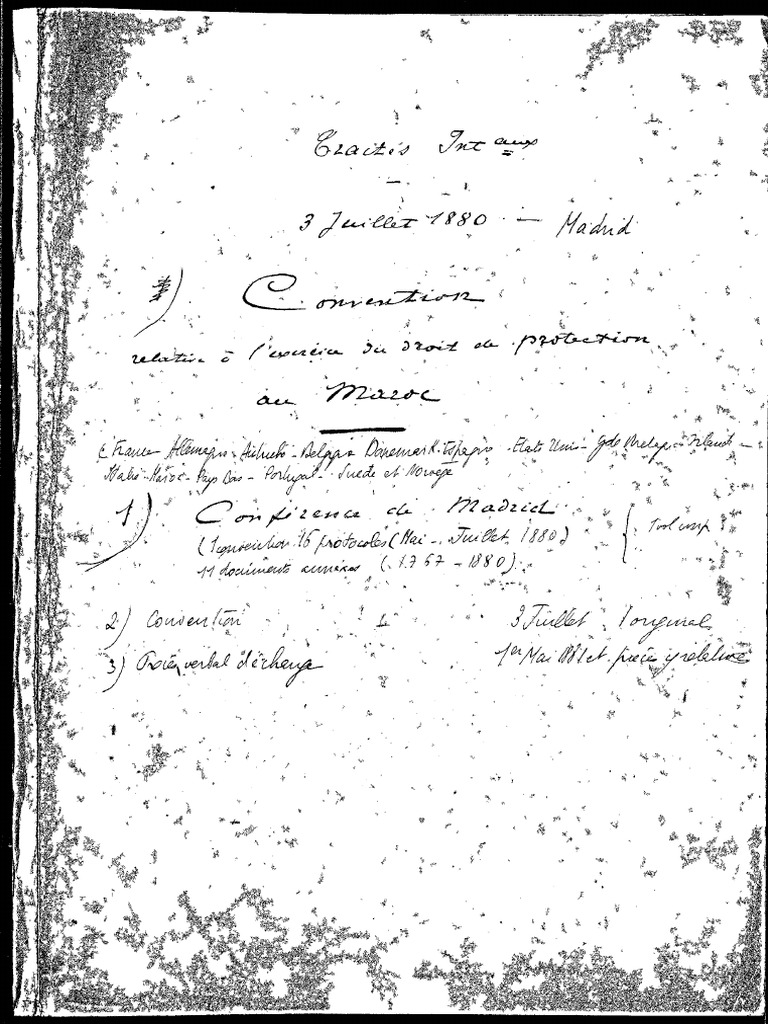 Traités Int aux
3 Juillet 1880 — Madrid
Convention
relative à l'exercice du droit de protection
au Maroc
France Allemagne - Autriche - Belgique Danemark - Espagne - Etats Unis - Gde Bretagne - Irlande -
Italie - Maroc - Pays Bas - Portugal - Suède et Norvège
1) Conférence de Madrid
(1 convention 16 protocoles (Mai - Juillet 1880)
11 documents annexes (1767 - 1880)
2) Convention 3 Juillet 1 original
3) Procès verbal d'échange 1er Mai 1881 et pièce y relative